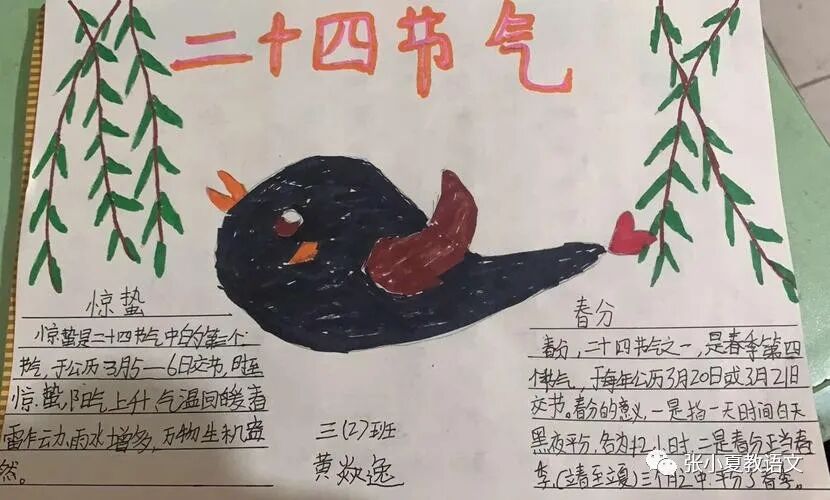 二十四节气
惊蛰
惊蛰是二十四节气中的第三个
节气,于公历3月5—6日交节,时至
惊蛰,阳气上升,气温回暖,春
雷乍动,雨水增多,万物生机盎
然。
三(2)班
黄焱逸
春分
春分,二十四节气之一,是春季第四
个节气,于每年公历3月20日或3月21日
交节。春分的意义,一是指一天时间白天
黑夜平分,各为12小时,二是春分正当春
季(立春至立夏)三个月之中,平分了春季。
张小夏教语文